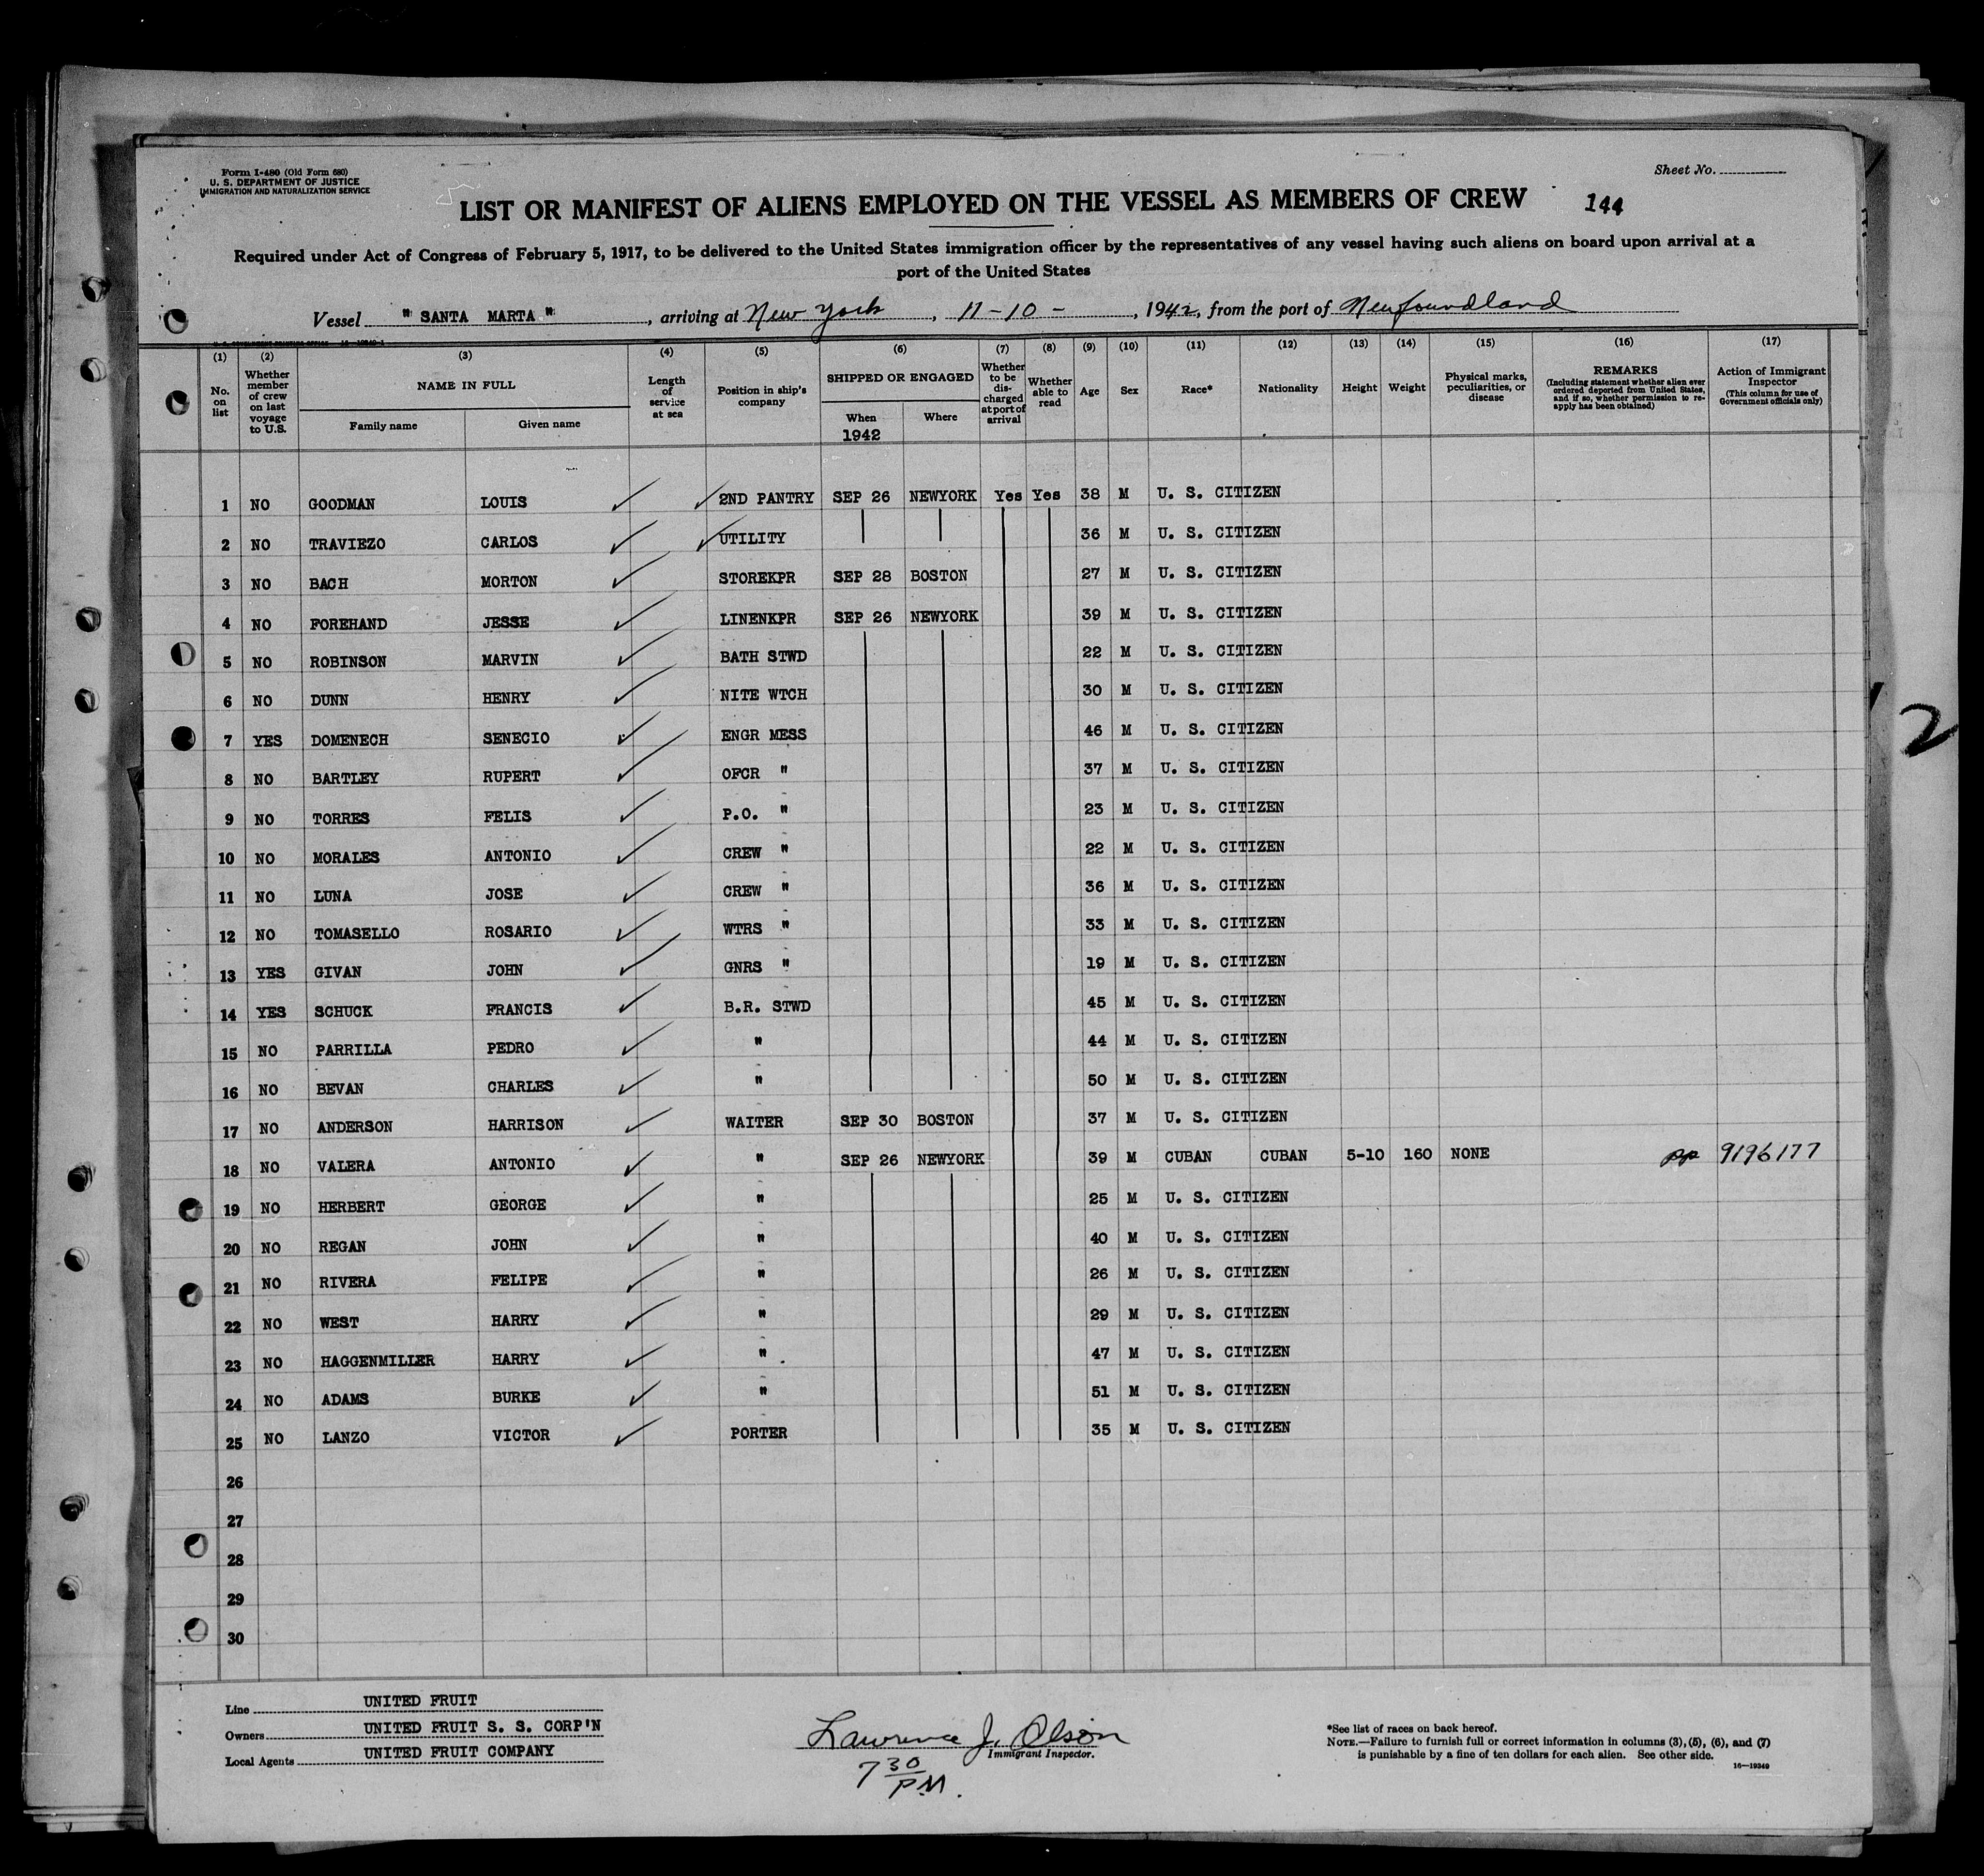 Form I-480 (Old Form 680)
U. S. DEPARTMENT OF JUSTICE
IMMIGRATION AND NATURALIZATION SERVICE
Sheet No.
LIST OR MANIFEST OF ALIENS EMPLOYED ON THE VESSEL AS MEMBERS OF CREW 144
Required under Act of Congress of February 5, 1917, to be delivered to the United States immigration officer by the representatives of any vessel having such aliens on board upon arrival at a
port of the United States
Vessel " SANTA MARTA ", arriving at New York, 11-10-, 1942, from the port of Newfoundland
(1) (2) (3) (4) (5) (6) (7) (8) (9) (10) (11) (12) (13) (14) (15) (16) (17)
No. on list
Whether member of crew on last voyage to U.S.
NAME IN FULL
Family name Given name
Length of service at sea
Position in ship's company
SHIPPED OR ENGAGED
When 1942 Where
Whether to be discharged at port of arrival
Whether able to read
Age Sex Race* Nationality Height Weight
Physical marks, peculiarities, or disease
REMARKS (Including statement whether alien ever ordered deported from United States, and if so, whether permission to reapply has been obtained)
Action of Immigrant Inspector (This column for use of Government officials only)
1 NO GOODMAN LOUIS 2ND PANTRY SEP 26 NEWYORK Yes Yes 38 M U. S. CITIZEN
2 NO TRAVIEZO CARLOS UTILITY 36 M U. S. CITIZEN
3 NO BACH MORTON STOREKPR SEP 28 BOSTON 27 M U. S. CITIZEN
4 NO FOREHAND JESSE LINENKPR SEP 26 NEWYORK 39 M U. S. CITIZEN
5 NO ROBINSON MARVIN BATH STWD 22 M U. S. CITIZEN
6 NO DUNN HENRY NITE WTCH 30 M U. S. CITIZEN
7 YES DOMENECH SENECIO ENGR MESS 46 M U. S. CITIZEN
8 NO BARTLEY RUPERT OFCR " 37 M U. S. CITIZEN
9 NO TORRES FELIS P.O. " 23 M U. S. CITIZEN
10 NO MORALES ANTONIO CREW " 22 M U. S. CITIZEN
11 NO LUNA JOSE CREW " 36 M U. S. CITIZEN
12 NO TOMASELLO ROSARIO WTRS " 33 M U. S. CITIZEN
13 YES GIVAN JOHN GNRS " 19 M U. S. CITIZEN
14 YES SCHUCK FRANCIS B.R. STWD 45 M U. S. CITIZEN
15 NO PARRILLA PEDRO " 44 M U. S. CITIZEN
16 NO BEVAN CHARLES " 50 M U. S. CITIZEN
17 NO ANDERSON HARRISON WAITER SEP 30 BOSTON 37 M U. S. CITIZEN
18 NO VALERA ANTONIO " SEP 26 NEWYORK 39 M CUBAN CUBAN 5-10 160 NONE pp 9196177
19 NO HERBERT GEORGE " 25 M U. S. CITIZEN
20 NO REGAN JOHN " 40 M U. S. CITIZEN
21 NO RIVERA FELIPE " 26 M U. S. CITIZEN
22 NO WEST HARRY " 29 M U. S. CITIZEN
23 NO HAGGENMILLER HARRY " 47 M U. S. CITIZEN
24 NO ADAMS BURKE " 51 M U. S. CITIZEN
25 NO LANZO VICTOR PORTER 35 M U. S. CITIZEN
26
27
28
29
30
2
Line UNITED FRUIT
Owners UNITED FRUIT S. S. CORP'N
Local Agents UNITED FRUIT COMPANY
Lawrence J. Olson
Immigrant Inspector.
7 30
P.M.
*See list of races on back hereof.
NOTE.—Failure to furnish full or correct information in columns (3), (5), (6), and (7)
is punishable by a fine of ten dollars for each alien. See other side.
16—19349